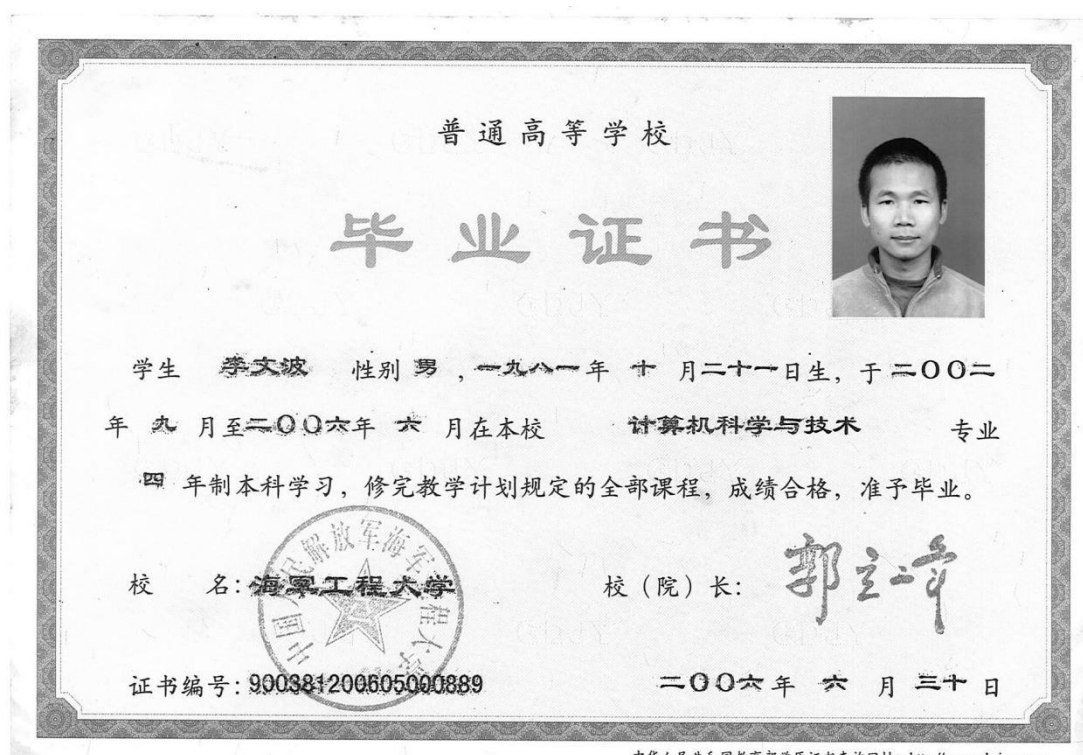 普通高等学校
毕业证书
学生 李文波 性别 男 , 一九八一年 十 月二十一日生, 于二〇〇二
年 九 月至二〇〇六年 六 月在本校 计算机科学与技术 专业
四 年制本科学习, 修完教学计划规定的全部课程, 成绩合格, 准予毕业。
校 名: 海军工程大学 校 (院) 长:
中国人民解放军海军工程大学
证书编号: 900381200605000889 二〇〇六年 六 月 三十 日